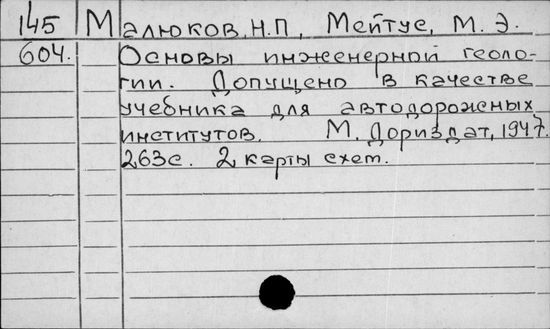 145 Малюков, Н.П., Мейтус, М. Э.
604. Основы инженерной геоло-
гии. Допущено в качестве
учебника для автодорожных
институтов. М. Дориздат, 1947.
263с. 2 карты схем.